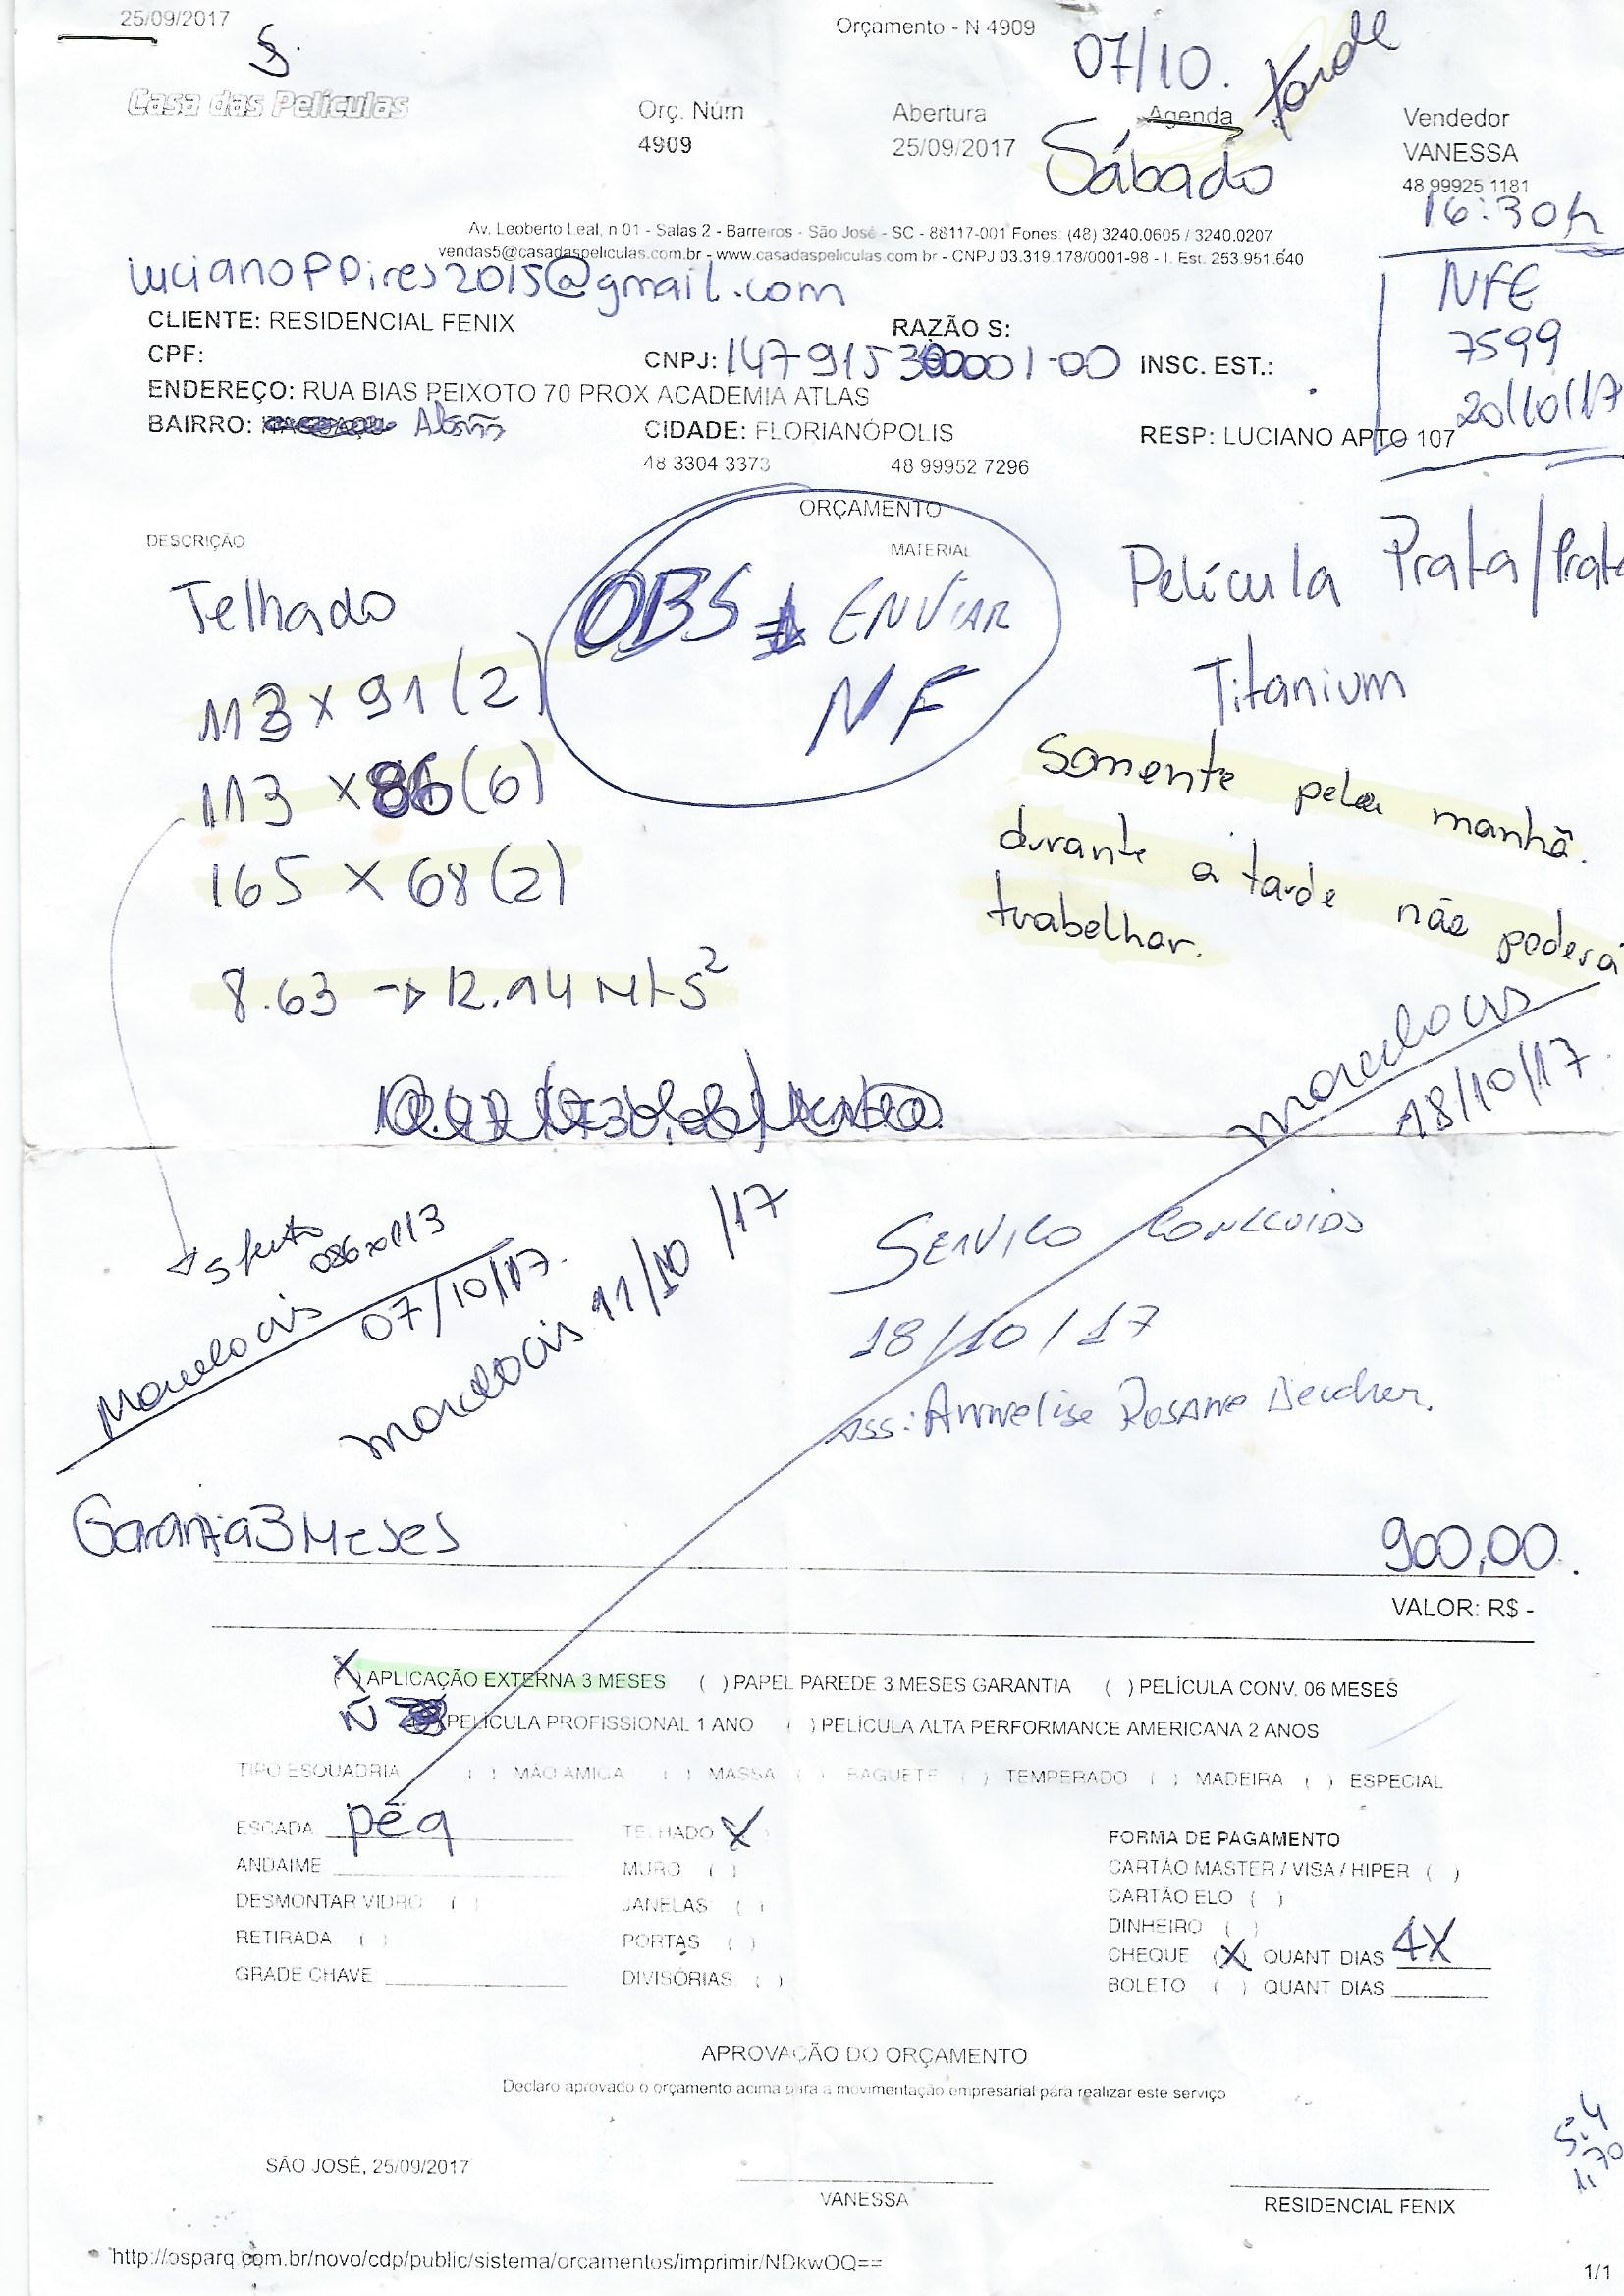 25/09/2017
Orçamento - N 4909
07/10. tarde
Casa das Películas
Orç. Núm
4909
Abertura
25/09/2017
Agenda
Sábado
Vendedor
VANESSA
48 99925 1181
16:30h
Av. Leoberto Leal, n 01 - Salas 2 - Barreiros - São José - SC - 88117-001 Fones: (48) 3240.0605 / 3240.0207
vendas5@casadaspeliculas.com.br - www.casadaspeliculas.com.br - CNPJ 03.319.178/0001-98 - I. Est. 253.951.640
NFE
7599
20/10/17
CLIENTE: RESIDENCIAL FENIX
RAZÃO S:
CPF:
CNPJ:
INSC. EST.:
ENDEREÇO: RUA BIAS PEIXOTO 70 PROX ACADEMIA ATLAS
BAIRRO:
CIDADE: FLORIANÓPOLIS
RESP: LUCIANO APTO 107
48 3304 3373
48 99952 7296
ORÇAMENTO
DESCRIÇÃO
MATERIAL
Telhado
OBS ENVIAR
NF
Película Prata/Prata
Titanium
113 x 91 (2)
113 x 86 (6)
165 x 68 (2)
8.63 → 12.94 Mts²
Somente pela manhã.
durante a tarde não poderá
trabalhar.
18/10/17
086x113
07/10/17.
11/10/17
SERVIÇO CONCLUIDO
18/10/17
ass: Annelise Rosane
Garantia 3 Meses
900,00.
VALOR: R$ -
(X) APLICAÇÃO EXTERNA 3 MESES ( ) PAPEL PAREDE 3 MESES GARANTIA ( ) PELÍCULA CONV. 06 MESES
PELÍCULA PROFISSIONAL 1 ANO ( ) PELÍCULA ALTA PERFORMANCE AMERICANA 2 ANOS
TIPO ESQUADRIA ( ) MÃO AMIGA ( ) MASSA ( ) BAGUETE ( ) TEMPERADO ( ) MADEIRA ( ) ESPECIAL
ESCADA peq
TELHADO X
FORMA DE PAGAMENTO
ANDAIME
MURO ( )
CARTÃO MASTER / VISA / HIPER ( )
DESMONTAR VIDRO ( )
JANELAS ( )
CARTÃO ELO ( )
RETIRADA ( )
PORTAS ( )
DINHEIRO ( )
GRADE CHAVE
DIVISÓRIAS ( )
CHEQUE (X) QUANT DIAS 4X
BOLETO ( ) QUANT DIAS
APROVAÇÃO DO ORÇAMENTO
Declaro aprovado o orçamento acima para a movimentação empresarial para realizar este serviço
SÃO JOSÉ, 25/09/2017
VANESSA
RESIDENCIAL FENIX
http://osparq.com.br/novo/cdp/public/sistema/orcamentos/imprimir/NDkwOQ==
1/1